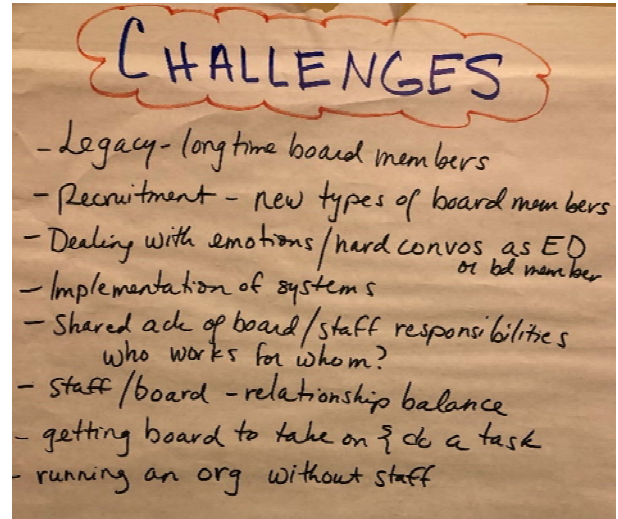 CHALLENGES
- Legacy - longtime board members
- Recruitment - new types of board members
- Dealing with emotions/hard convos as ED
or bd member
- Implementation of systems
- Shared ack of board/staff responsibilities
who works for whom?
- Staff/board - relationship balance
- getting board to take on & do a task
- running an org without staff